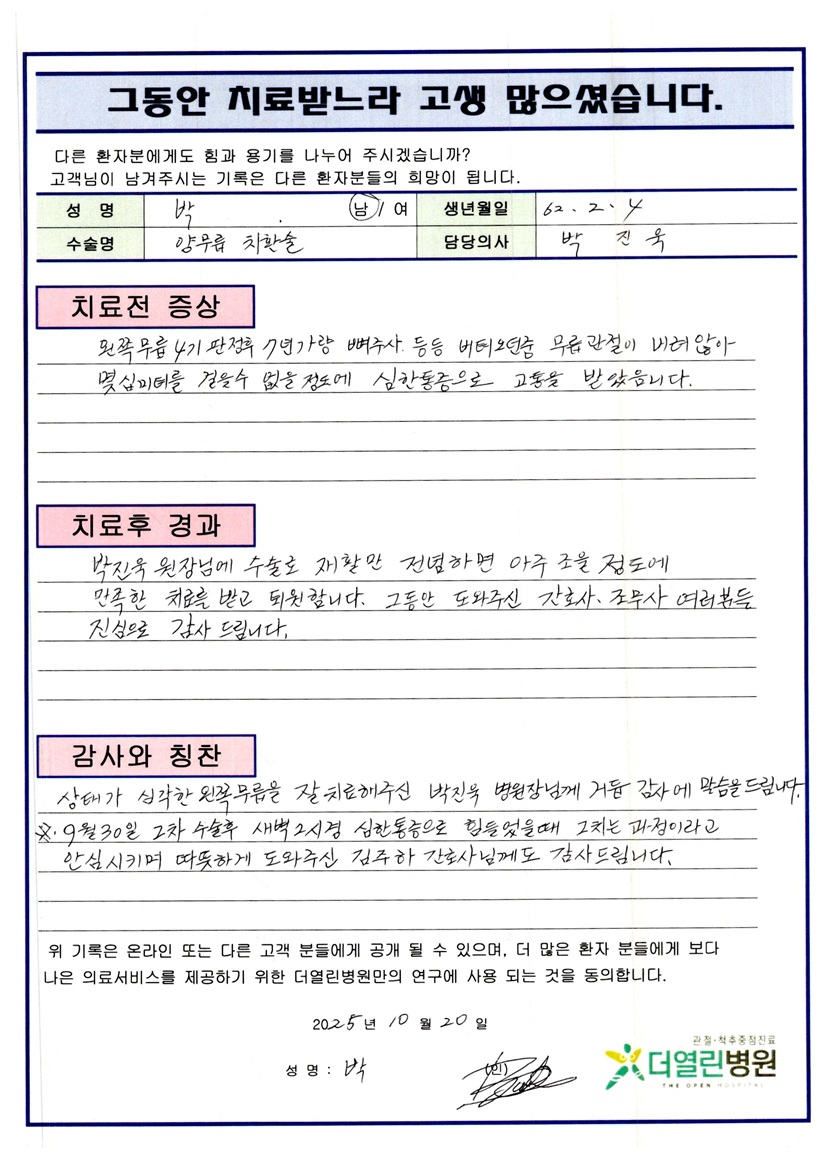 그동안 치료받느라 고생 많으셨습니다.
다른 환자분에게도 힘과 용기를 나누어 주시겠습니까?
고객님이 남겨주시는 기록은 다른 환자분들의 희망이 됩니다.
성 명 박 . 남 / 여 생년월일 62. 2. 4
수술명 양무릎 치환술 담당의사 박 진 욱
치료전 증상
왼쪽무릎 4기 판정후 7년가량 뼈주사. 등등 버티오던중 무릎관절이 내려앉아
몇십미터를 걸을수 없을정도에 심한통증으로 고통을 받았읍니다.
치료후 경과
박진욱 원장님에 수술로 재활만 전념하면 아주 조을 정도에
만족한 치료를 받고 퇴원합니다. 그동안 도와주신 간호사. 조무사 여러분들
진심으로 감사 드립니다.
감사와 칭찬
상태가 심각한 왼쪽무릎을 잘치료해주신 박진욱 병원장님께 거듭 감사에 말슴을드립니다.
※. 9월30일 2차 수술후 새벽2시경 심한통증으로 힘들었을때 그치는과정이라고
안심시키며 따뜻하게 도와주신 김주하 간호사님께도 감사드립니다.
위 기록은 온라인 또는 다른 고객 분들에게 공개 될 수 있으며, 더 많은 환자 분들에게 보다
나은 의료서비스를 제공하기 위한 더열린병원만의 연구에 사용 되는 것을 동의합니다.
2025년 10월 20일
성 명 : 박 (인)
관절·척추중점진료
더열린병원
THE OPEN HOSPITAL